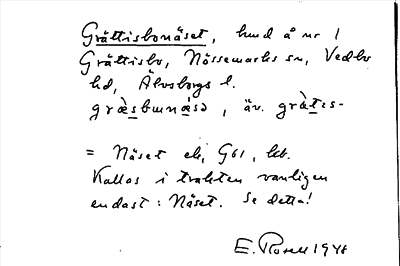 Grättisbonäset, hmd å nr 1
Grättisbo, Nössemarks sn, Vedbo
hd, Älvsborgs l.
græ̀sbωnǽsə, äv. græ̀tɪs-
= Näset ek, G61, hb.
Kallas i trakten vanligen
endast: Näset. Se detta!
E. Rosell 1948